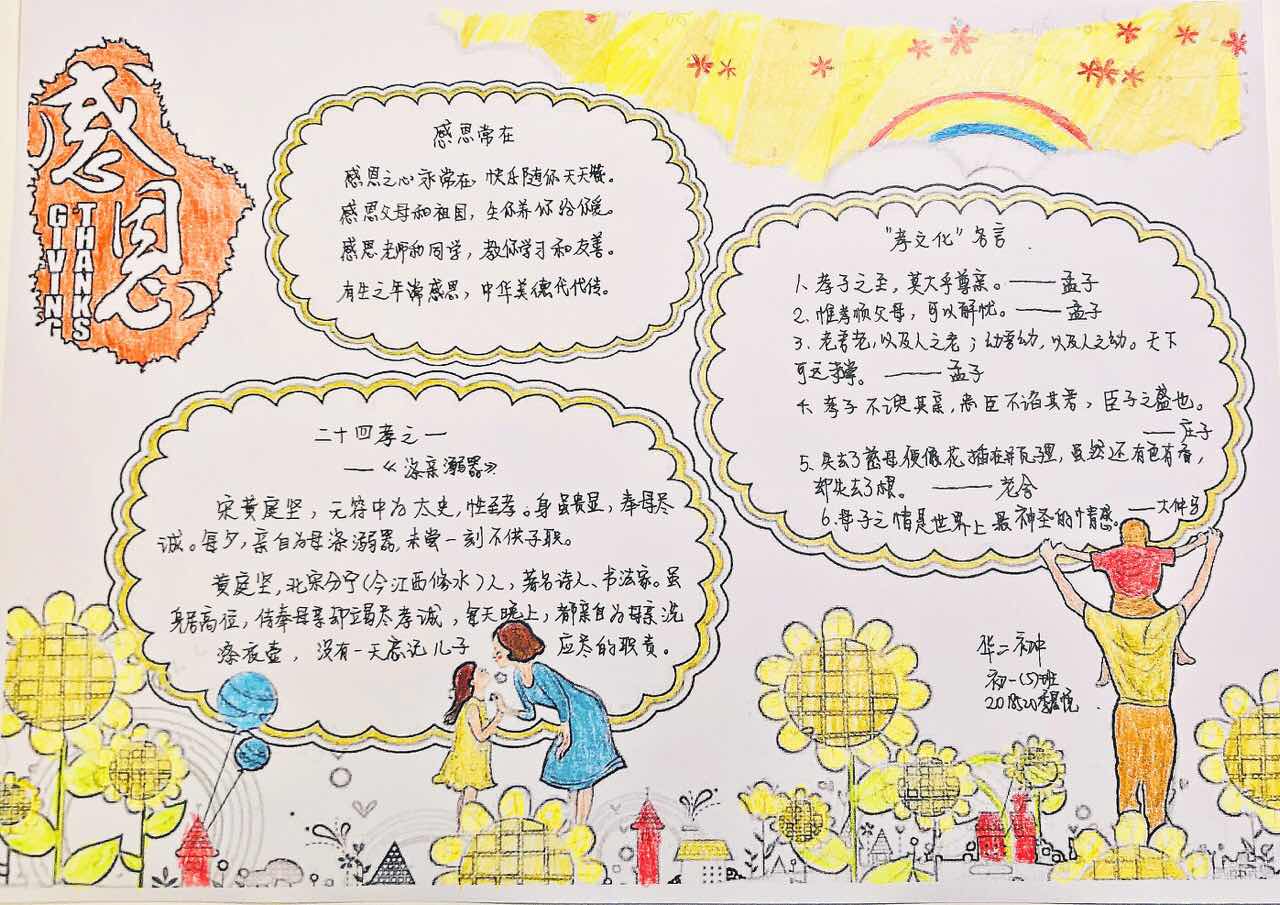 感恩
GIVING
THANKS
感恩常在
感恩之心永常在,快乐随你天天。
感恩父母和祖国,生你养你给你爱。
感恩老师和同学,教你学习和友善。
有生之年常感恩,中华美德代代传。
"孝文化"名言
1、孝子之至,莫大乎尊亲。——孟子
2、惟孝顺父母,可以解忧。——孟子
3、老吾老,以及人之老;幼吾幼,以及人之幼。天下
可运掌。——孟子
4、孝子不谀其亲,忠臣不谄其君,臣子之盛也。
——庄子
5、失去了慈母便像花插在瓶子里,虽然还有色有香,
却失去了根。——老舍
6、母子之情是世界上最神圣的情感。——大仲马
二十四孝之一
——《涤亲溺器》
宋黄庭坚,元符中为太史,性至孝。身虽贵显,奉母尽
诚。每夕,亲自为母涤溺器,未尝一刻不供子职。
黄庭坚,北宋分宁(今江西修水)人,著名诗人、书法家。虽
身居高位,侍奉母亲却竭尽孝诚,每天晚上,都亲自为母亲洗
涤夜壶,没有一天忘记儿子应尽的职责。
华二初中
初一(5)班